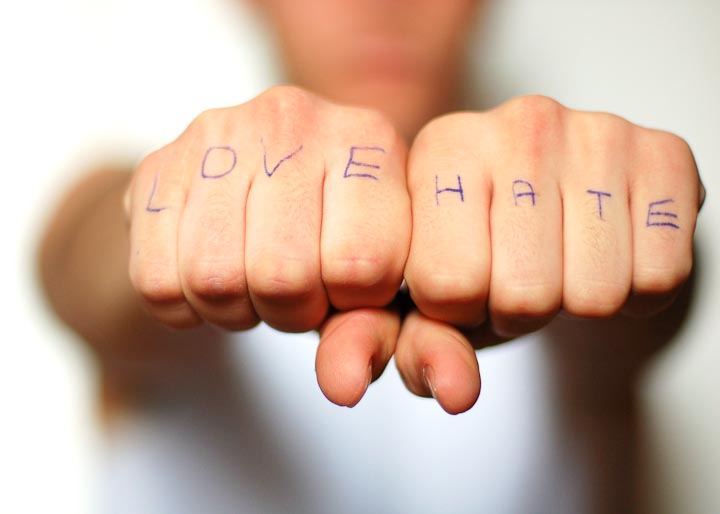 LOVE HATE